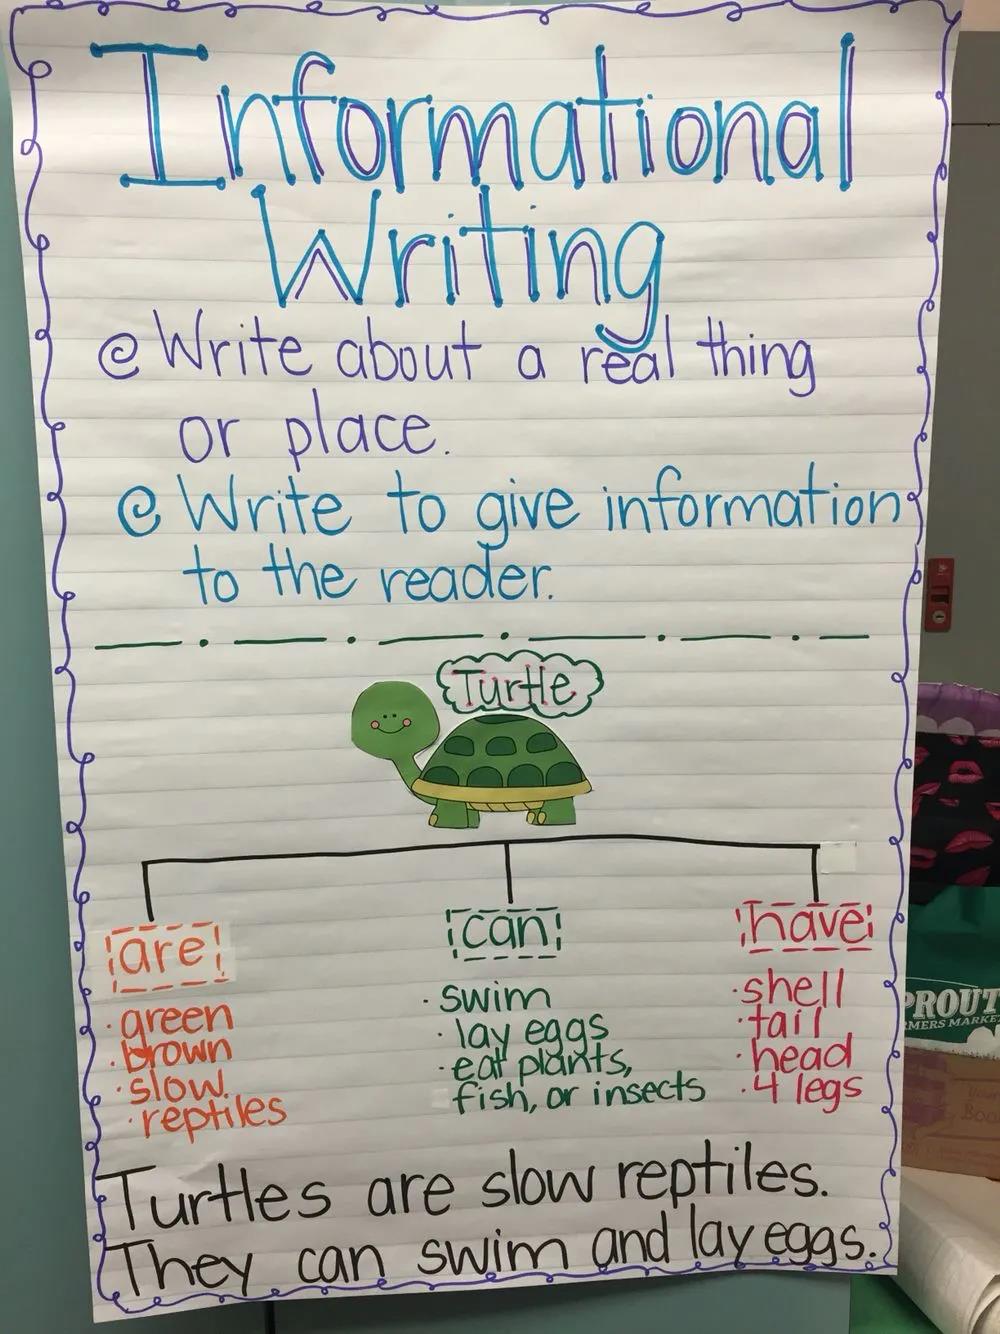 Informational
Writing
Write about a real thing
or place.
Write to give information
to the reader.
Turtle
are
can
have
· green
· brown
· slow.
· reptiles
· swim
· lay eggs
· eat plants,
fish, or insects
· shell
· tail
· head
· 4 legs
Turtles are slow reptiles.
They can swim and lay eggs.
PROUT
RMERS MARKE